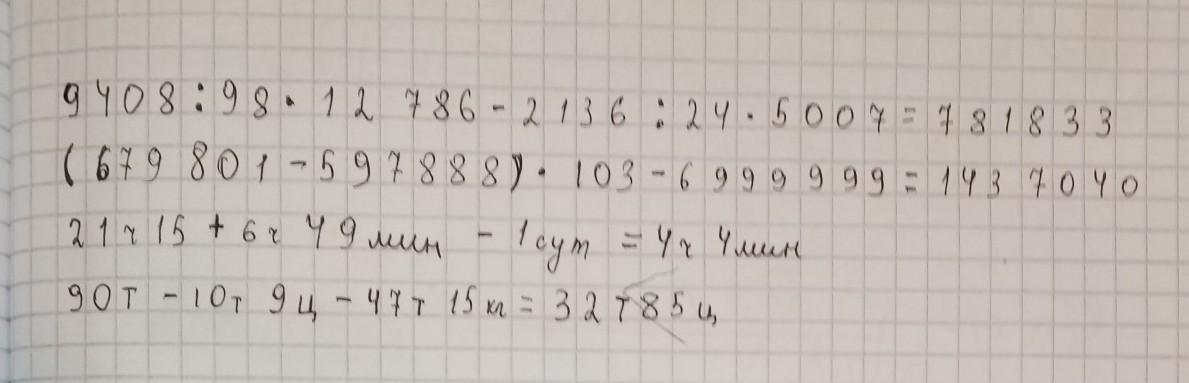 9408:98·12 786-2136:24·5007=781833
(679 801-597888)·103-6999999=1437040
21ч15+6ч 49мин -1сут =4ч 4мин
90т-10т 9ц-47т 15кг=32т85ц